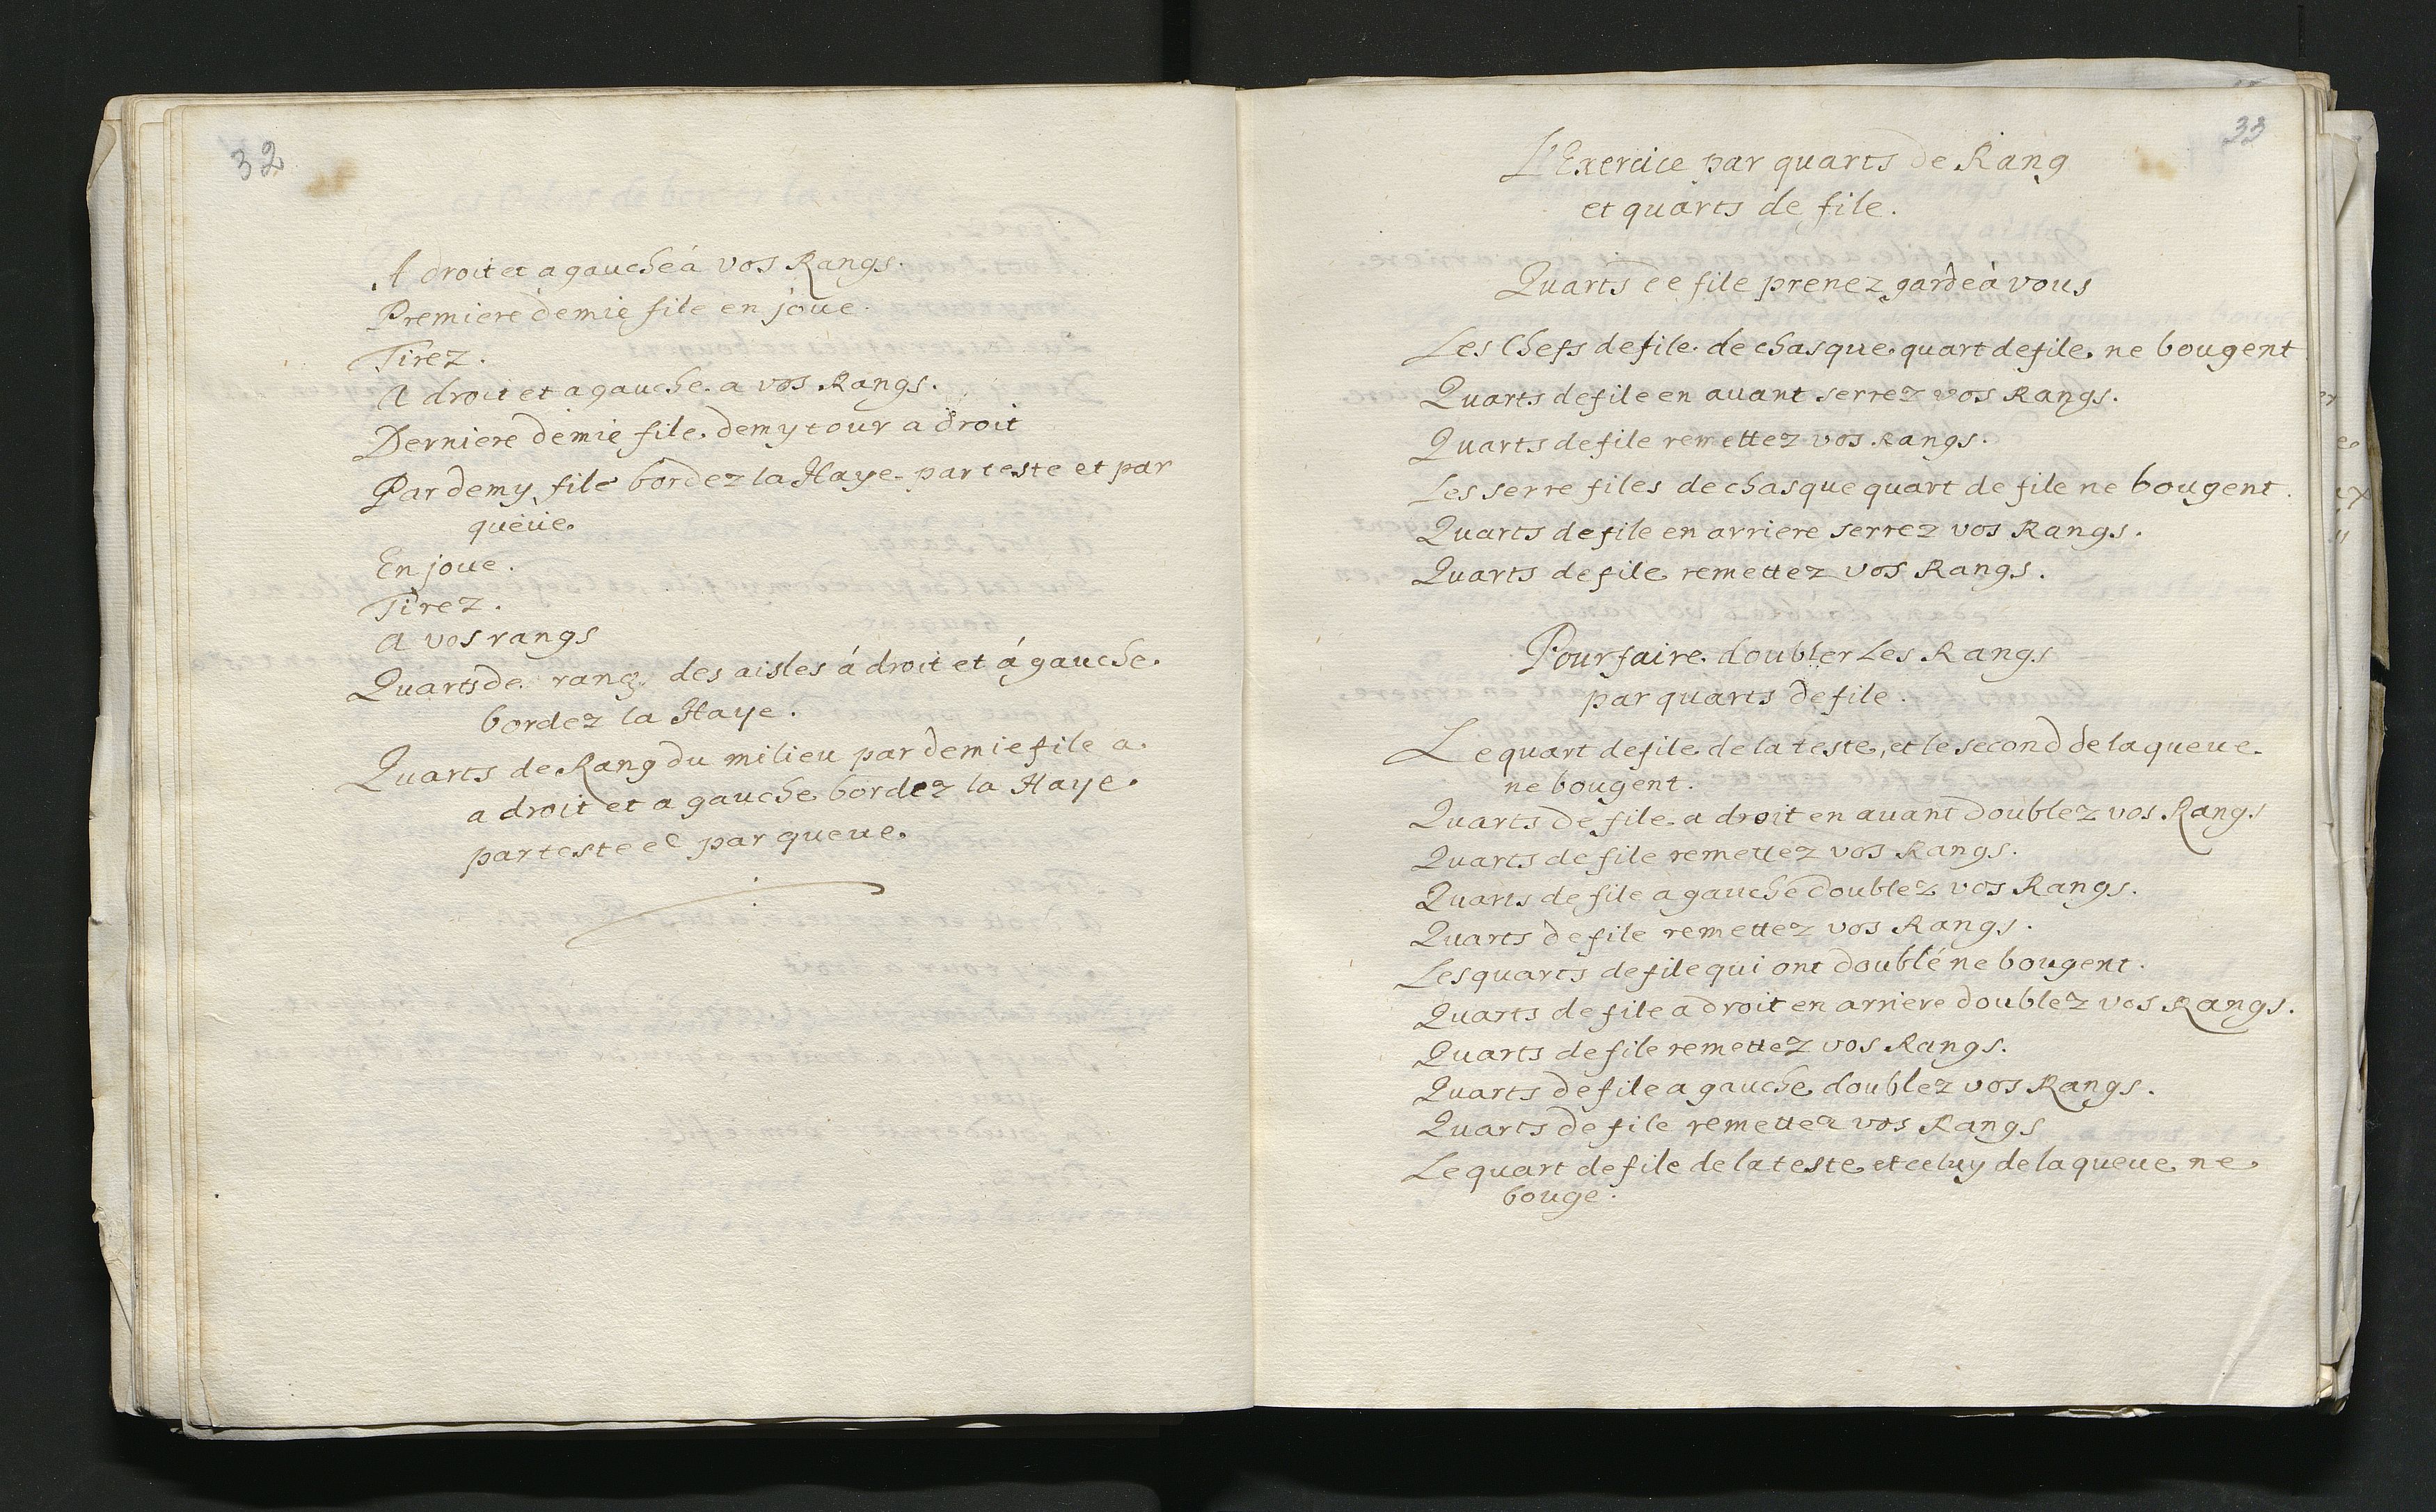 32
A droit et a gauche à vos Rangs.
Premiere demie file en joüe.
Tirez.
A droit et a gauche a vos Rangs.
Derniere demie file demy tour a droit
Par demy file bordez la Haye par teste et par
queüe.
En joue.
Tirez.
A vos rangs
Quarts de rang des aisles á droit et á gauche
bordez la Haye.
Quarts de Rang du milieu par demie file a
a droit et a gauche bordez la Haye.
par teste et par queue.
33
L'Exercice par quarts de Rang
et quarts de file.
Quarts de file prenez garde à vous
Les Chefs de file de chasque quart de file ne bougent
Quarts de file en auant serrez vos Rangs.
Quarts de file remettez vos Rangs.
Les serre files de chasque quart de file ne bougent.
Quarts de file en arriere serrez vos Rangs.
Quarts de file remettez vos Rangs.
Pour faire doubler Les Rangs
par quarts de file.
Le quart de file de la teste, et le second de la queue
ne bougent.
Quarts de file a droit en auant doublez vos Rangs
Quarts de file remettez vos Rangs.
Quarts de file a gauche doublez vos Rangs.
Quarts de file remettez vos Rangs.
Les quarts de file qui ont doublé ne bougent.
Quarts de file a droit en arriere doublez vos Rangs.
Quarts de file remettez vos Rangs.
Quarts de file a gauche doublez vos Rangs.
Quarts de file remettez vos Rangs
Le quart de file de la teste et celuy de la queue ne
bouge.